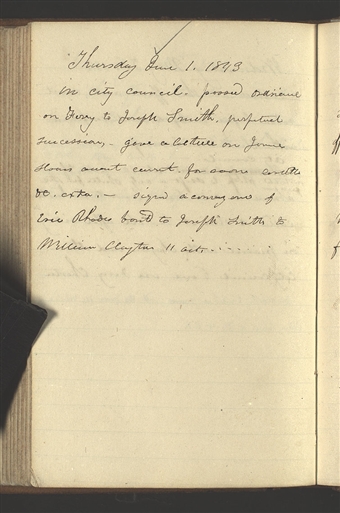 Thursday June 1. 1843
in city council. passed ordinance
on Ferry to Joseph Smith, perpetual
succession. - gave a lecture on
&c. extra. - signd a conveyance of
Eric Rhodes bond to Joseph Smith to
William Clayton 11